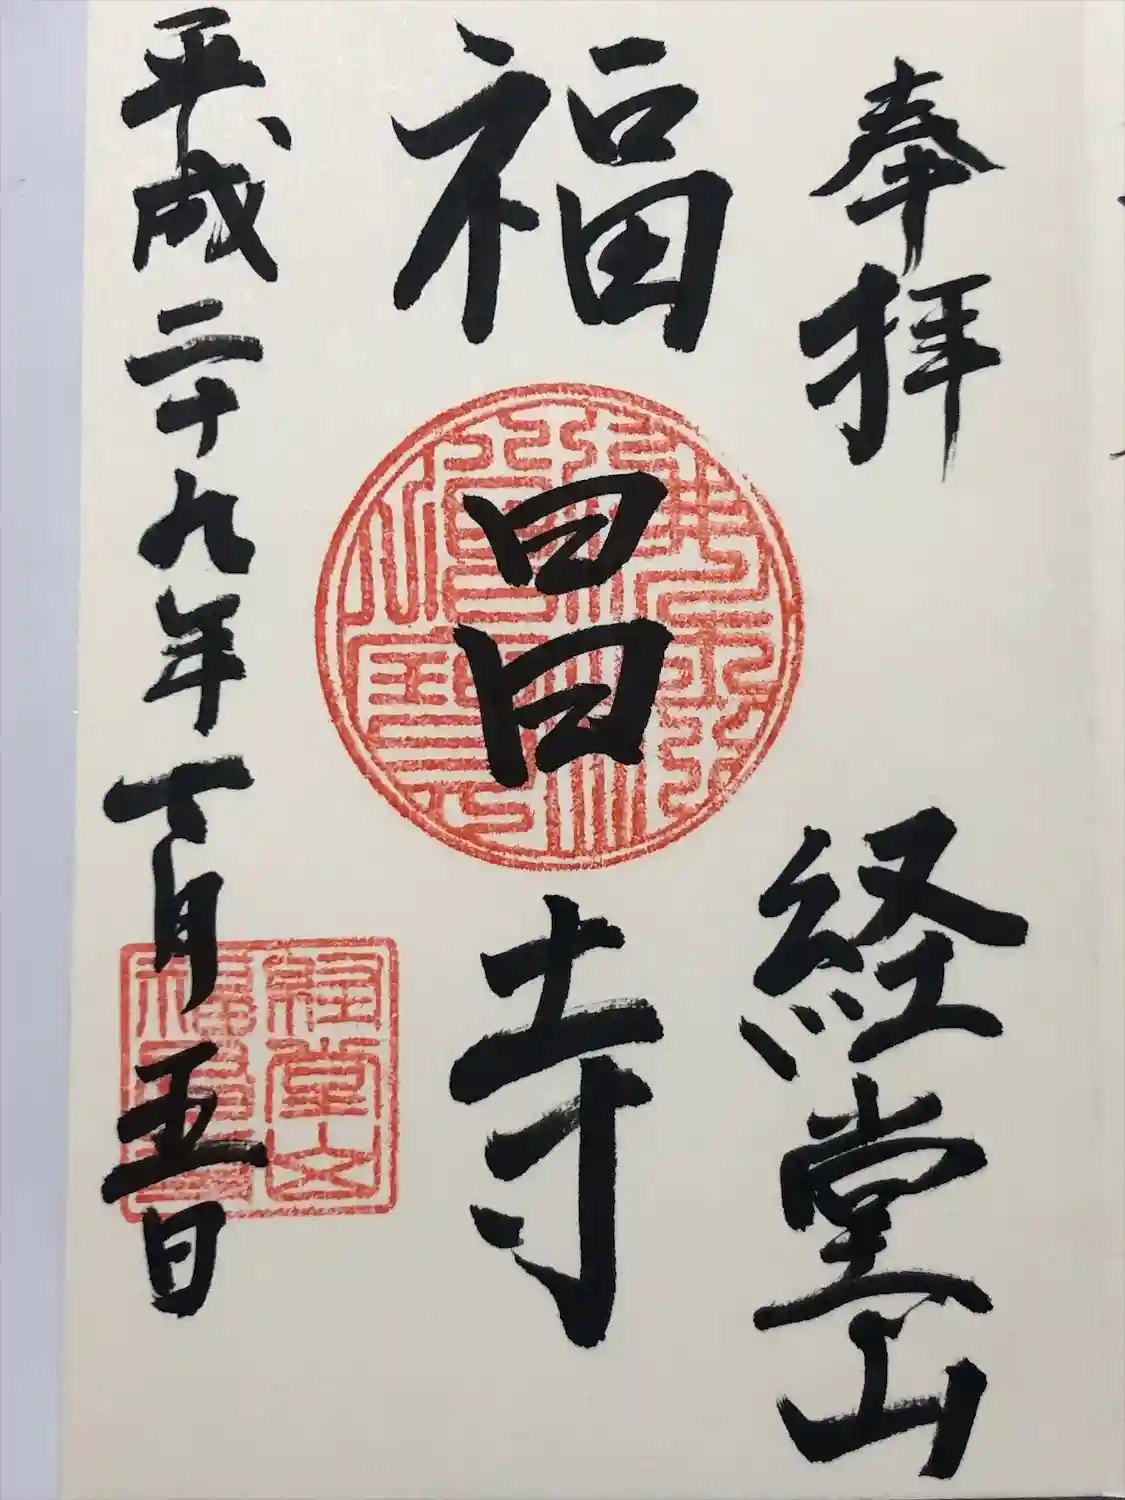 奉拝 経堂山
福昌寺
平成二十九年 月五日
経堂山
福昌寺